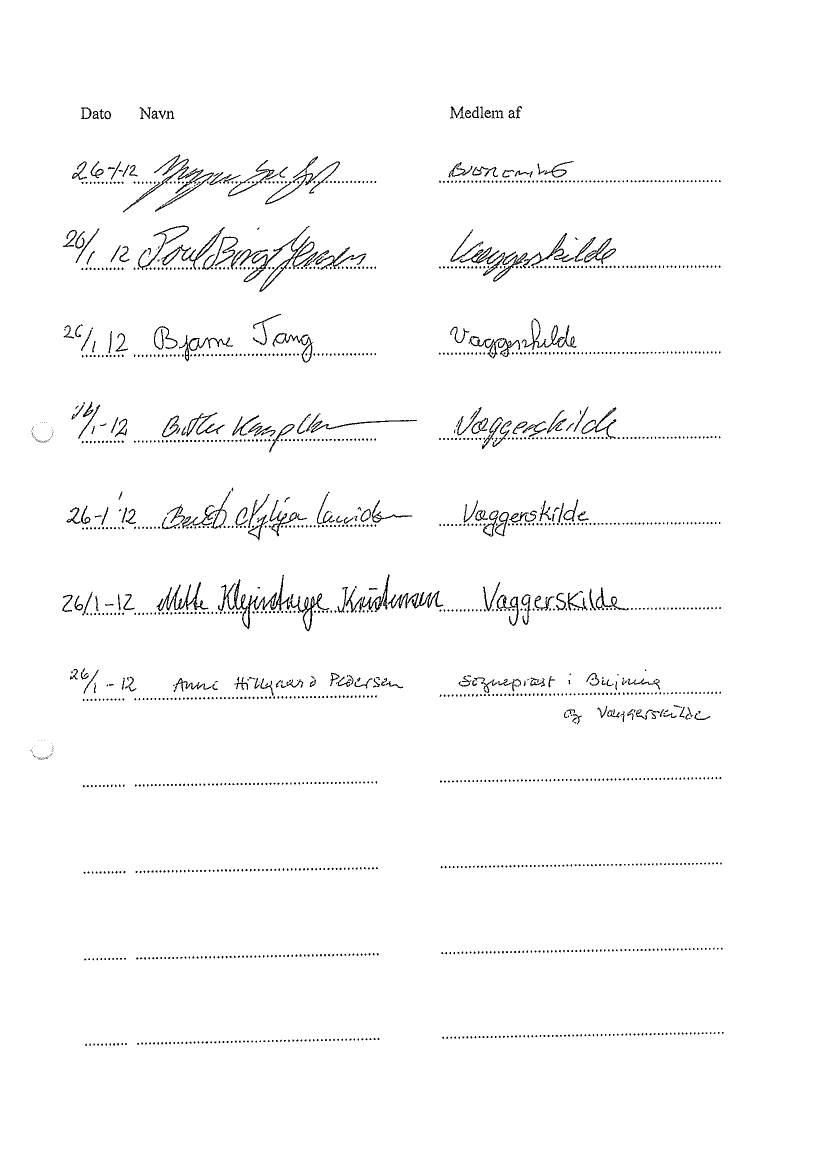 Dato Navn Medlem af
26-1-12
26/1 12 Poul Børge Jensen Væggerskilde
26/1 12 Bjarne Tang Væggerskilde
26/1-12 Væggerskilde
26-1 12 Væggerskilde
26/1-12 Mette Klejnstrup Kristensen Væggerskilde
26/1-12 Anne Hillgaard Pedersen Sognepræst i
og Væggerskilde